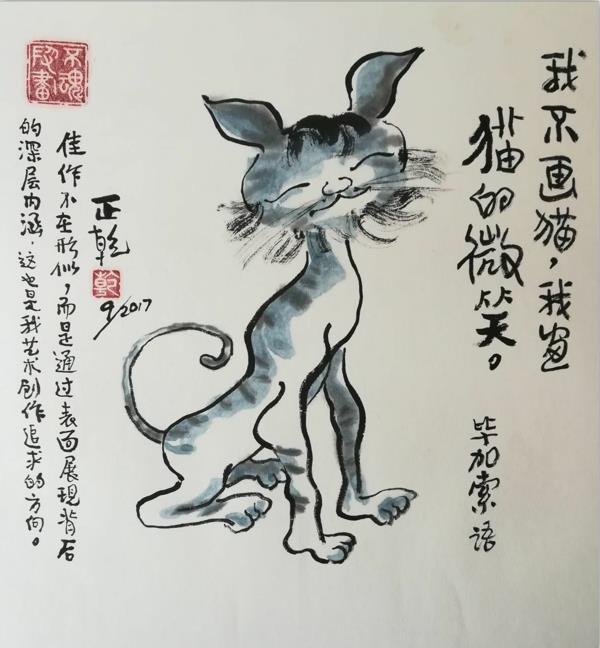 我不画猫，我画
猫的微笑。
毕加索语
正乾
乾
9/2017
佳作不在形似，而是通过表面展现背后
的深层内涵，这也是我艺术创作追求的方向。